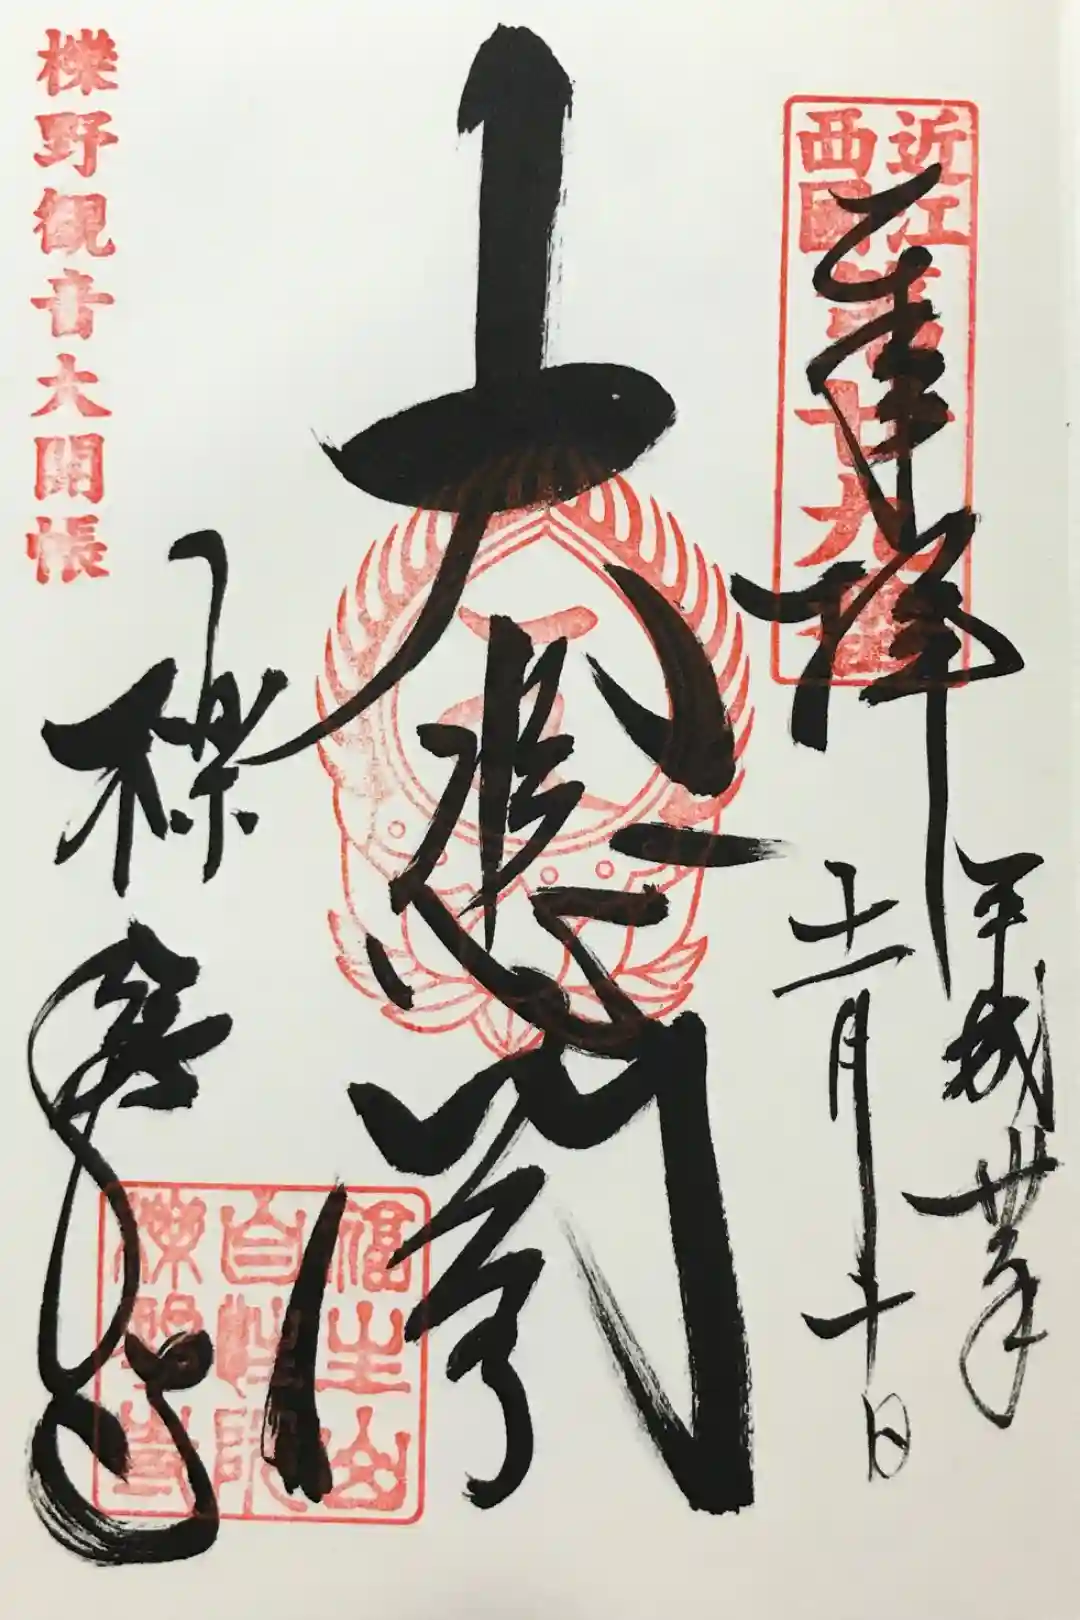 近江
西國
第廿九番
奉拝
平成卅年
十一月十日
大悲閣
櫟野寺
櫟野観音大開帳
福生山
自性院
櫟野寺